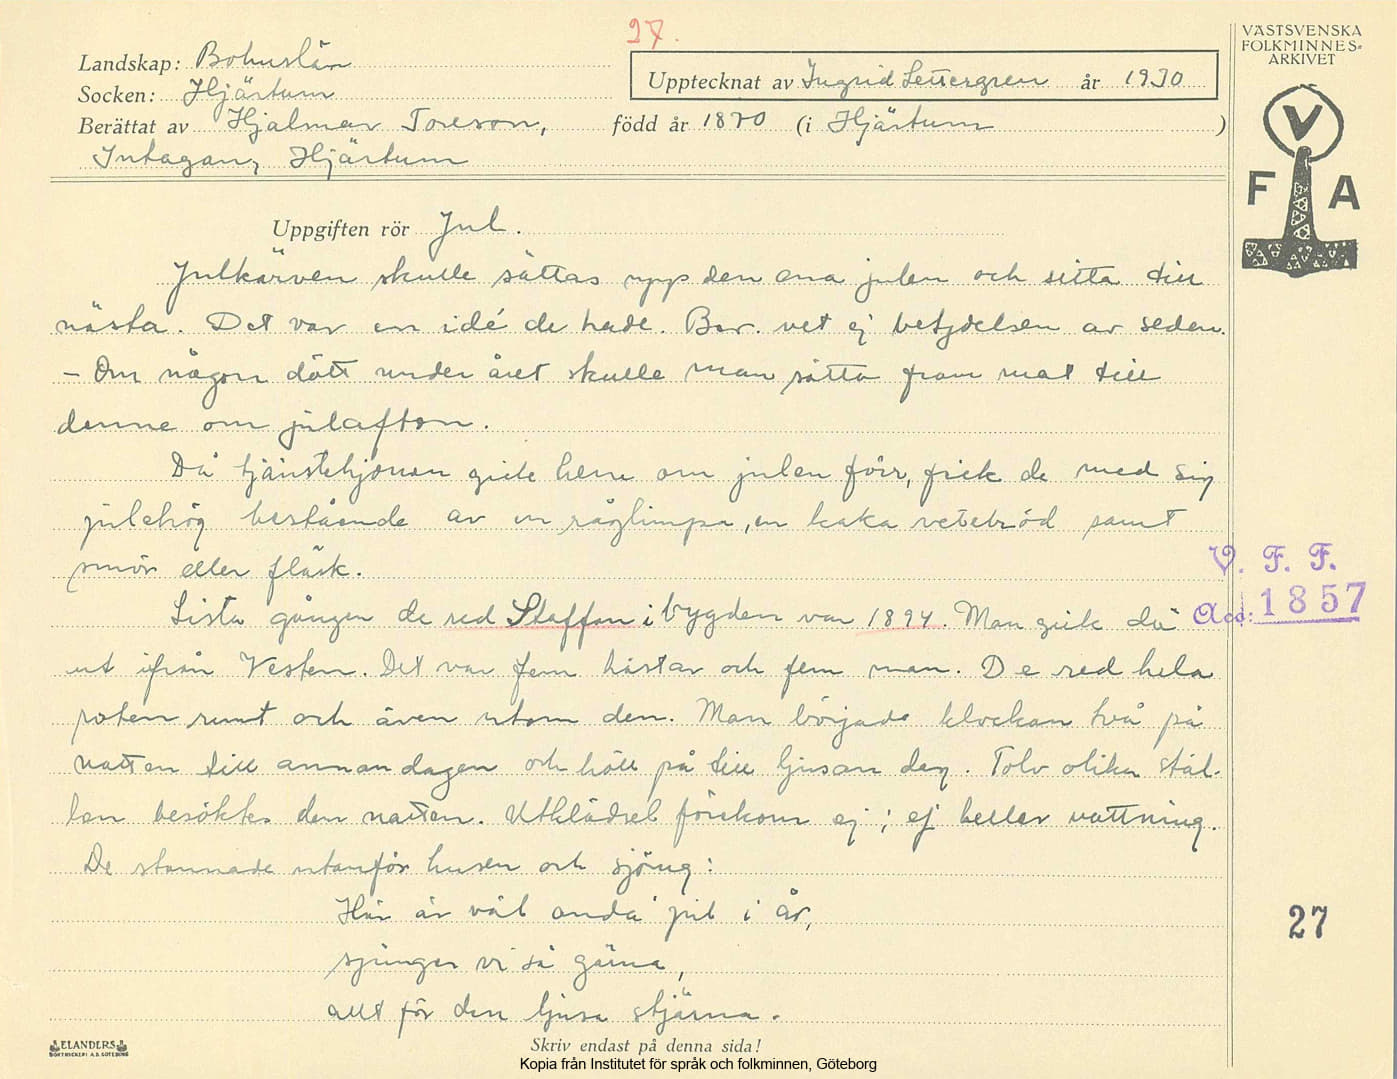 27.
VÄSTSVENSKA
FOLKMINNES-
ARKIVET
V
F A
Landskap: Bohuslän
Socken: Hjärtum
Upptecknat av Ingrid Settergren år 1930
Berättat av Hjalmar Toreson, född år 1870 (i Hjärtum )
Intagan, Hjärtum
Uppgiften rör Jul.
Julkärven skulle sättas upp den ena julen och sitta till
nästa. Det var en idé de hade. Ber. vet ej betydelsen av seden.
– Om någon dött under året skulle man sätta fram mat till
denne om julafton.
Då tjänstehjonen gick hem om julen förr, fick de med sig
julehög bestående av en råglimpa, en kaka vetebröd samt
smör eller fläsk.
V. F. F.
Sista gången de red Staffan i bygden var 1894. Man gick då
Acc: 1857
ut ifrån Vesten. Det var fem hästar och fem man. De red hela
roten runt och även utom den. Man började klockan två på
natten till annandagen och höll på till ljusan dag. Tolv olika stäl-
len besöktes den natten. Utklädsel förekom ej; ej heller vattning.
De stannade utanför husen och sjöng:
Här är väl ändå jul i år,
27
sjunger vi så gärna,
allt för den ljusa stjärna.
ELANDERS
BOKTRYCKERI A.B. GÖTEBORG
Skriv endast på denna sida!
Kopia från Institutet för språk och folkminnen, Göteborg